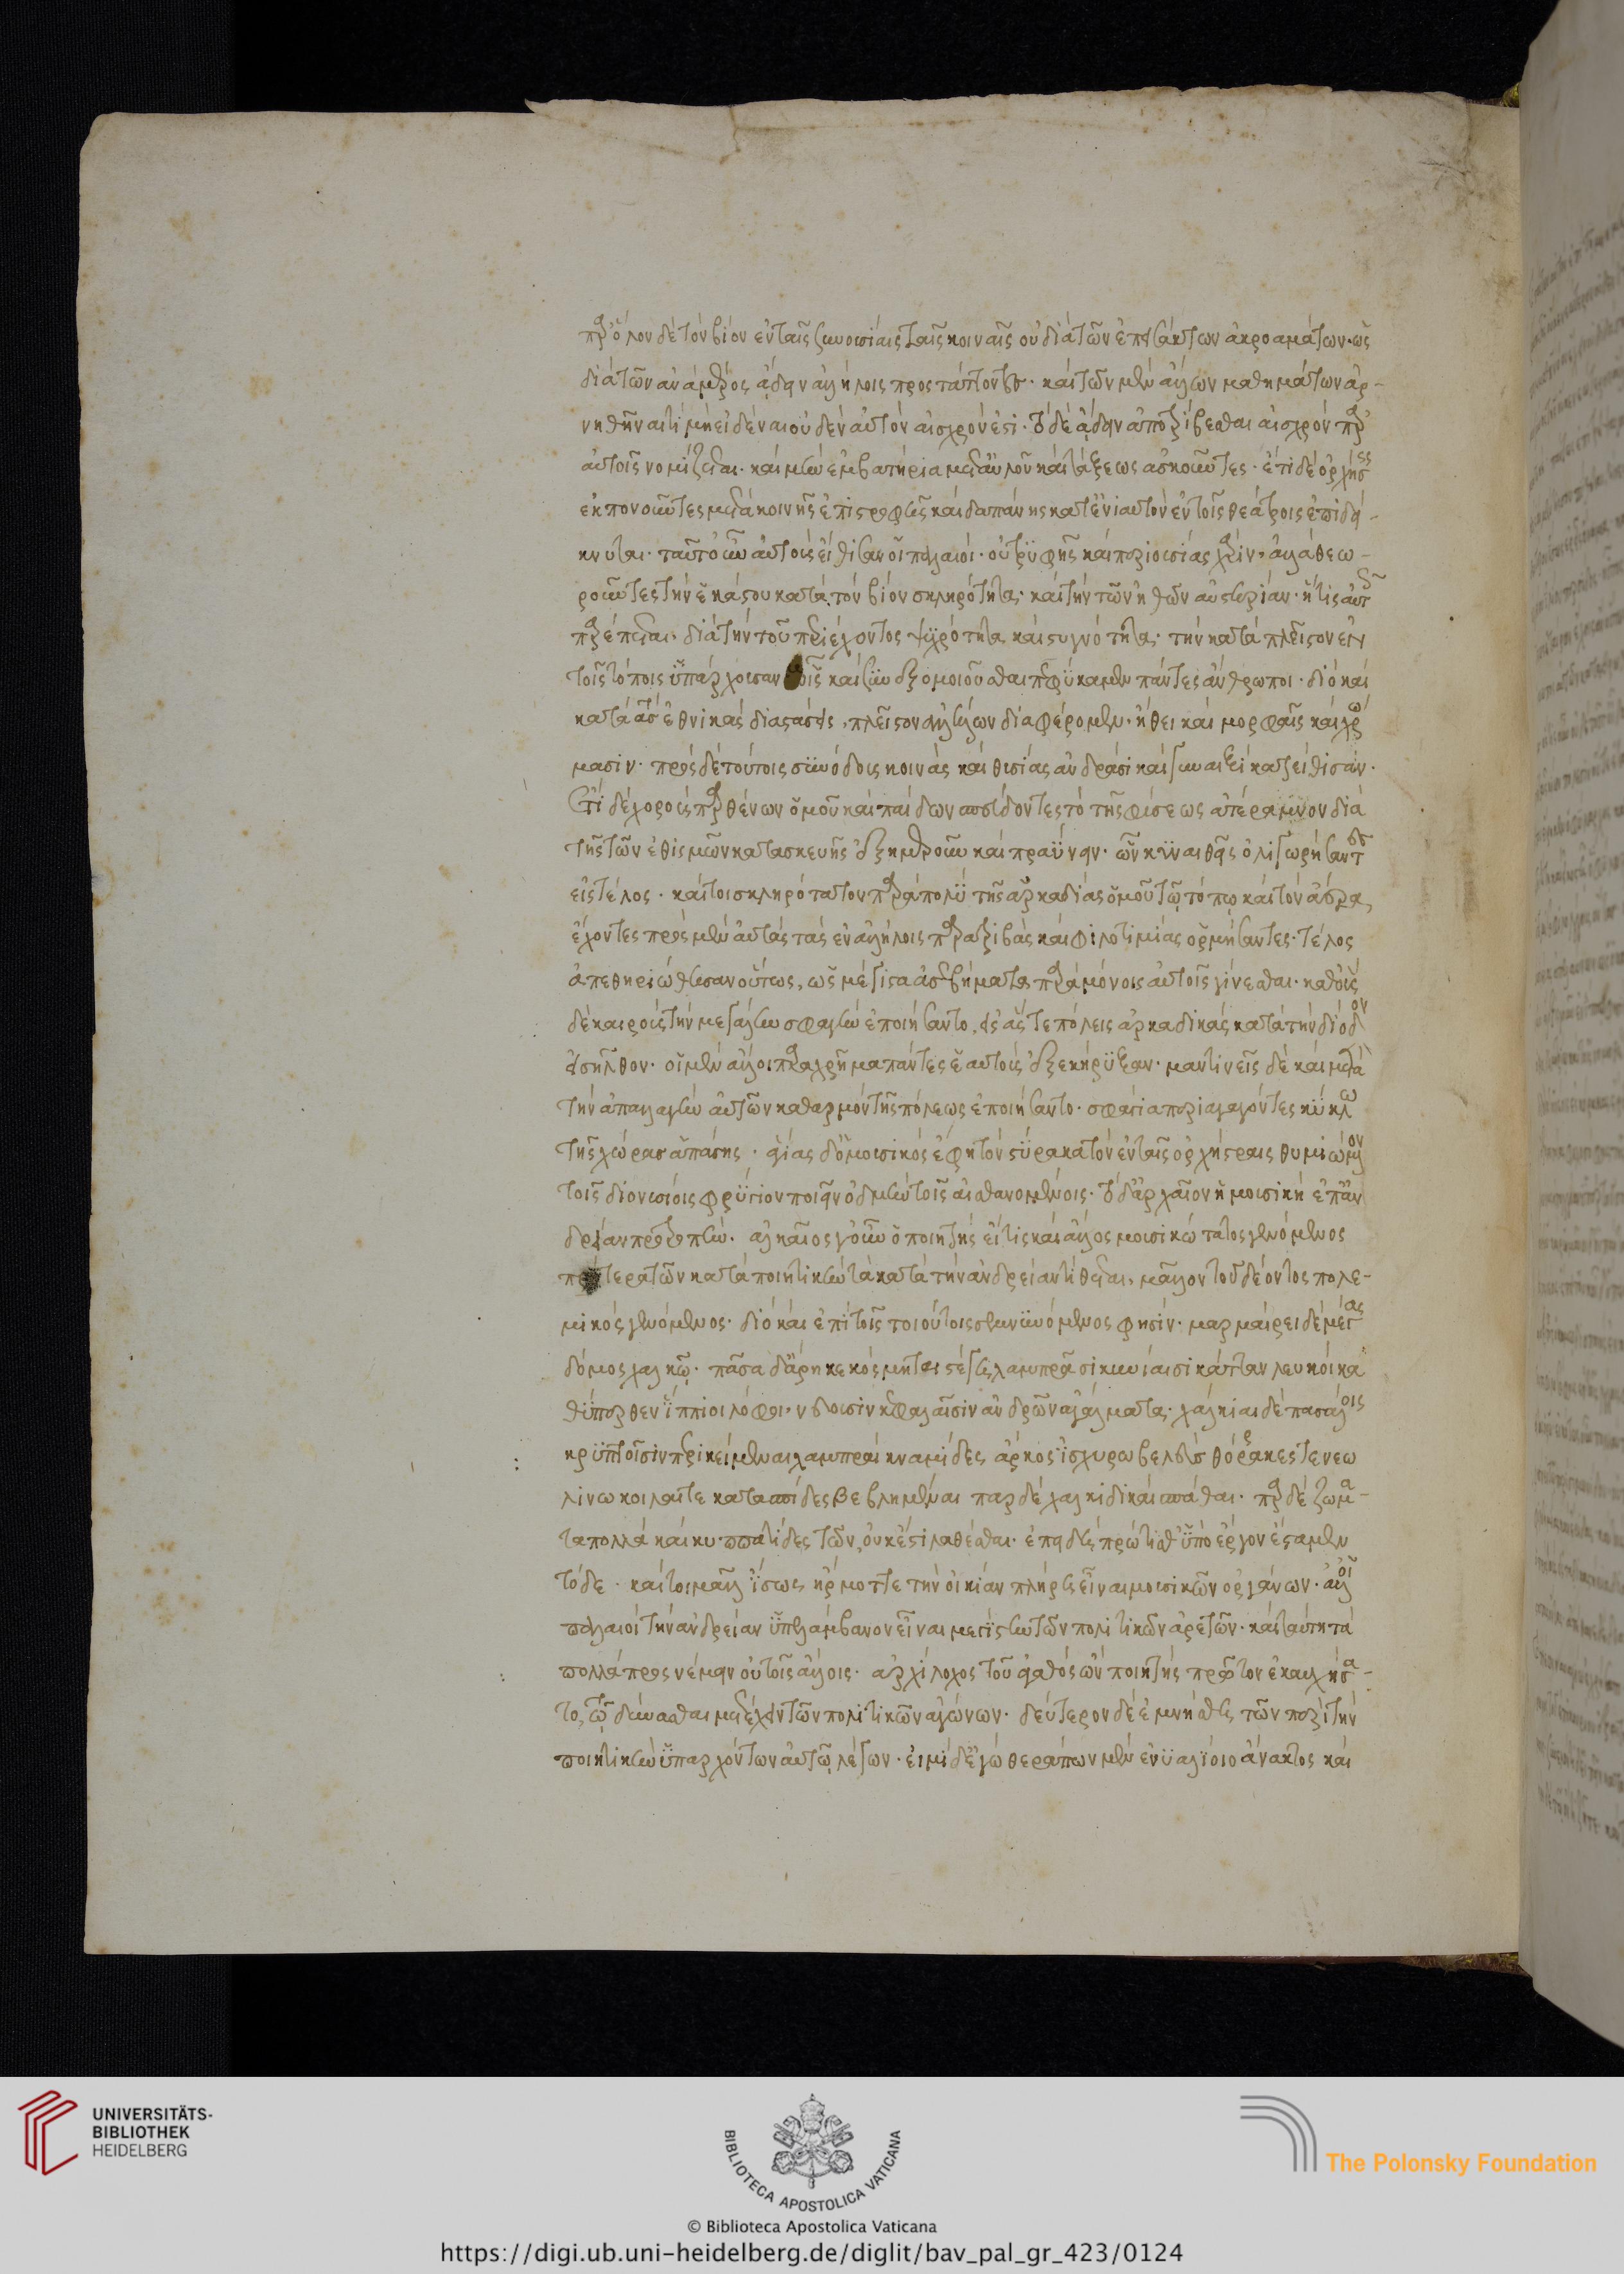 παρ' ὅλον δὲ τὸν βίον ἐν ταῖς συνουσίαις ταῖς κοιναῖς οὐ διὰ τῶν ἐπεισάκτων ἀκροαμάτων· ὡς
διὰ τῶν ἀνὰ μέρος ἄδειν ἀλλήλοις προστάττοντες· καὶ τῶν μὲν ἄλλων μαθημάτων ἀρ-
νηθῆναι τὶ μὴ εἰδέναι οὐδὲν αὐτὸν αἰσχρόν ἐστι· τὸ δὲ ἄδειν ἀποτρίβεσθαι αἰσχρὸν παρ'
αὐτοῖς νομίζεται· καὶ μὴν ἐμβατήρια μετ' αὐλοῦ καὶ τάξεως ἀσκοῦντες· ἔτι δὲ ὀρχήσεις
ἐκπονοῦντες μετὰ κοινῆς ἐπιστροφῆς καὶ δαπάνης κατ' ἐνιαυτὸν ἐν τοῖς θεάτροις ἐπιδεί-
κνυται· ταῦτ' οὖν αὐτοὺς εἴθισαν οἱ παλαιοί· οὐ τρυφῆς καὶ περιουσίας χάριν, ἀλλὰ θεω-
ροῦντες τὴν ἑκάστου κατὰ τὸν βίον σκληρότητα· καὶ τὴν τῶν ἠθῶν αὐστηρίαν· ἥτις αὐτοῖς
παρέπεται διὰ τὴν τοῦ περιέχοντος ψυχρότητα καὶ συγνότητα· τὴν κατὰ πλεῖστον ἐν
τοῖς τόποις ὑπάρχουσαν οἷς καὶ συνεξομοιοῦσθαι πεφύκαμεν πάντες ἄνθρωποι· διὸ καὶ
κατὰ τὰς ἐθνικὰς διαστάσεις, πλεῖστον ἀλλήλων διαφέρομεν· ἤθει καὶ μορφαῖς καὶ χρώ
μασιν· πρὸς δὲ τούτοις συνόδοις κοινὰς καὶ θυσίας ἀνδράσι καὶ γυναιξὶ κατείθισαν·
ἔτι δὲ χοροὺς παρθένων ὁμοῦ καὶ παίδων σπεύδοντες τὸ τῆς φύσεως ἀτέραμνον διὰ
τῆς τῶν ἐθισμῶν κατασκευῆς ἐξημεροῦν καὶ πραΰνειν· ὧν κυναιθεῖς ὀλιγωρήσαντες
εἰς τέλος· καίτοι σκληρότατον παρὰ πολὺ τῆς ἀρκαδίας ὁμοῦ τῷ τόπῳ καὶ τὸν ἀέρα,
ἔχοντες πρὸς μὲν αὐτὰς τὰς ἐν ἀλλήλοις παρατριβὰς καὶ φιλοτιμίας ὁρμήσαντες· τέλος
ἀπεθηριώθησαν οὕτως, ὡς μέγιστα ἀσεβήματα παρὰ μόνοις αὐτοῖς γίνεσθαι· καθ' οὓς
δὲ καιροὺς τὴν μεγάλην σφαγὴν ἐποιήσαντο, εἰς ἅς τε πόλεις ἀρκαδικὰς κατὰ τὴν δίοδον
εἰσῆλθον· οἱ μὲν ἄλλοι παραχρῆμα πάντες ἑαυτοὺς ἐξεκήρυξαν· μαντινεῖς δὲ καὶ μετὰ
τὴν ἀπαλλαγὴν αὐτῶν καθαρμὸν τῆς πόλεως ἐποιήσαντο· σφάγια περιαγαγόντες κύκλω
τῆς χώρας ἁπάσης· ἀγίας δ' ὁ μουσικὸς ἔφη τὸν στύρακα τὸν ἐν ταῖς ὀρχήστραις θυμιώμενον
τοῖς διονυσίοις φρύγιον ποιεῖν ὀδμὴν τοῖς αἰσθανομένοις· τὸ δ' ἀρχαῖον ἡ μουσικὴ ἐπ' ἀν
δρείαν προτροπὴν· ἀλκαῖος γοῦν ὁ ποιητὴς εἴ τις καὶ ἄλλος μουσικώτατος γενόμενος
πρότερα τῶν κατὰ ποιητικὴν τὰ κατὰ τὴν ἀνδρείαν τίθεται· μᾶλλον τοῦ δέοντος πολε-
μικὸς γενόμενος· διὸ καὶ ἐπὶ τοῖς τοιούτοις σεμνυνόμενος φησίν· μαρμαίρει δὲ μέγας
δόμος χαλκῷ· πᾶσα δ' ἄρη κεκόσμηται στέγη λαμπρᾶσι κυνίαισι κάτταν λευκοὶ κα
θύπερθεν ἵππιοι λόφοι· νεύουσιν κεφαλαῖσιν ἀνδρῶν ἀγάλματα· χάλκιαι δὲ πασάλοις
κρυπτοῖσιν περικείμεναι λαμπραὶ κναμίδες ἄρκος ἰσχυρω βέλευς θόρακές τε νέω
λίνω κοῖλαί τε κατασπίδες βεβλημέναι παρ δὲ χαλκιδικαὶ σπάθαι· παρ δὲ ζώμα-
τα πολλὰ καὶ κυππατίδες τῶν, οὐκ ἔστι λαθέσθαι· ἐπειδὴ πρώτισθ' ὑπὸ ἔργον ἔσταμεν
τόδε· καίτοι μᾶλλ' ἴσως ἥρμοττε τὴν οἰκίαν πλήρη εἶναι μουσικῶν ὀργάνων· ἀλλ' οἱ
παλαιοὶ τὴν ἀνδρείαν ὑπελάμβανον εἶναι μεγίστην τῶν πολιτικῶν ἀρετῶν· καὶ ταύτη τὰ
πολλὰ προσνέμειν οὐ τοῖς ἄλλοις· ἀρχίλοχος τοῦ ἀγαθὸς ὢν ποιητὴς πρῶτον ἐκαυχήσα-
το, τῷ δύνασθαι μετέχειν τῶν πολιτικῶν ἀγώνων· δεύτερον δὲ ἐμνήσθη τῶν περὶ τὴν
ποιητικὴν ὑπαρχόντων αὐτῷ λέγων· εἰμὶ δ' ἐγὼ θεράπων μὲν ἐνυαλίοιο ἄνακτος καὶ
UNIVERSITÄTS-
BIBLIOTHEK
HEIDELBERG
BIBLIOTECA APOSTOLICA VATICANA
The Polonsky Foundation
© Biblioteca Apostolica Vaticana
https://digi.ub.uni-heidelberg.de/diglit/bav_pal_gr_423/0124